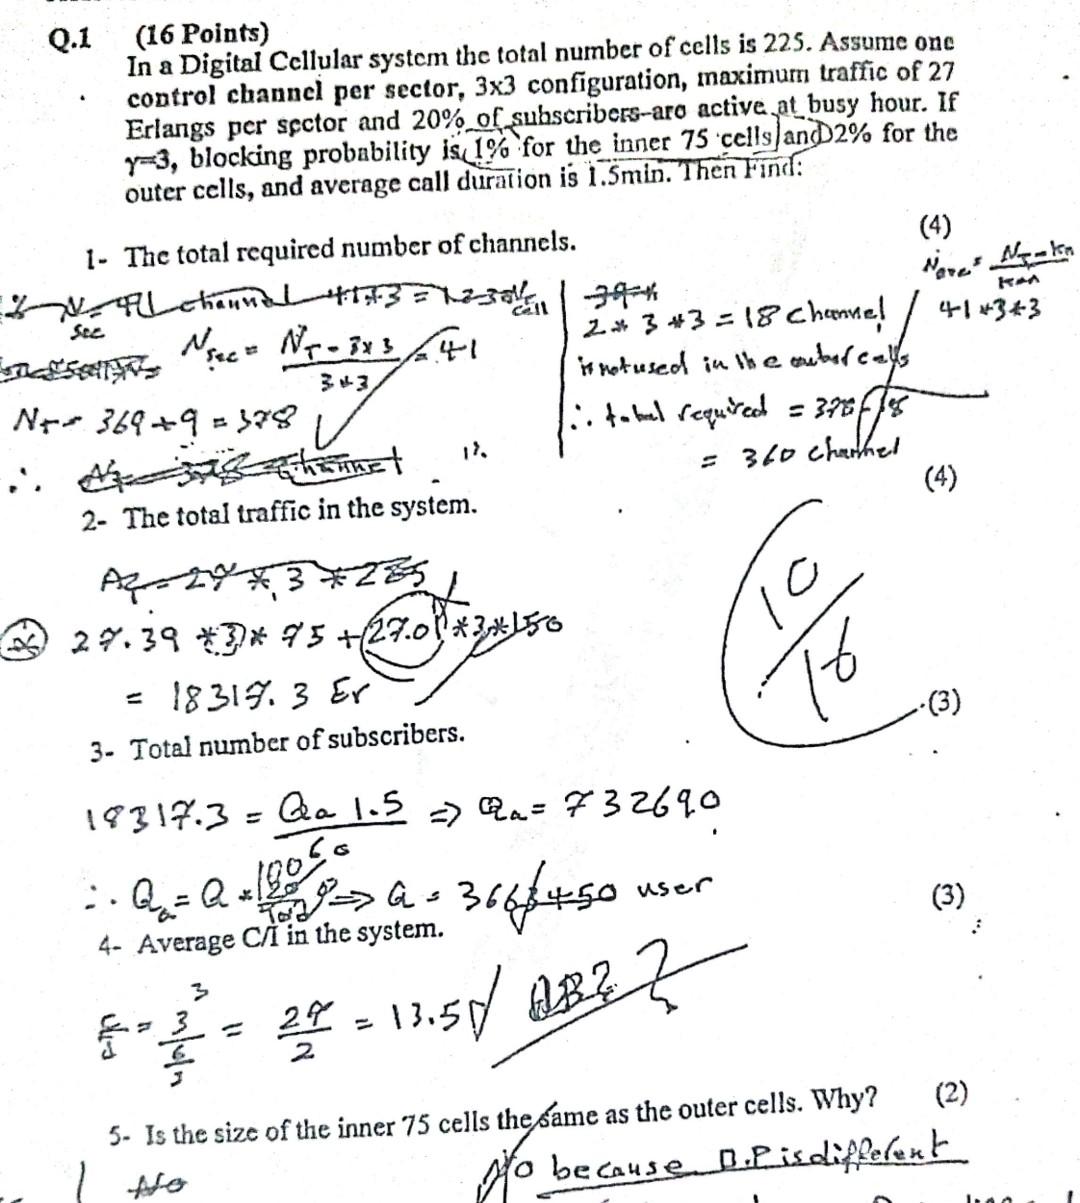 Q.1 (16 Points)
In a Digital Cellular system the total number of cells is 225. Assume one
control channel per sector, 3x3 configuration, maximum traffic of 27
Erlangs per sector and 20% of subscribers are active at busy hour. If
γ=3, blocking probability is 1% for the inner 75 cells and 2% for the
outer cells, and average call duration is 1.5min. Then Find:
(4)
1- The total required number of channels.
Nsec = NT - 3x3 / 3*3 = 41
NT = 369 + 9 = 378
1%
2 * 3 * 3 = 18 Channel
is not used in the outer cells
∴ total required = 378 - 18
= 360 channel
41*3*3
(4)
2- The total traffic in the system.
27.39 * 3 * 75 + 27.0 * 3 * 150
= 18317.3 Er
10/16
(3)
3- Total number of subscribers.
18317.3 = Qa 1.5 / 60 ⇒ Qa = 732690
∴ Qa = Q * ⇒ Q = 3663450 user
(3)
4- Average C/I in the system.
C/I = 3^3 / 6/3 = 27/2 = 13.5 dB? ?
5- Is the size of the inner 75 cells the same as the outer cells. Why? (2)
No because B.P is different
No